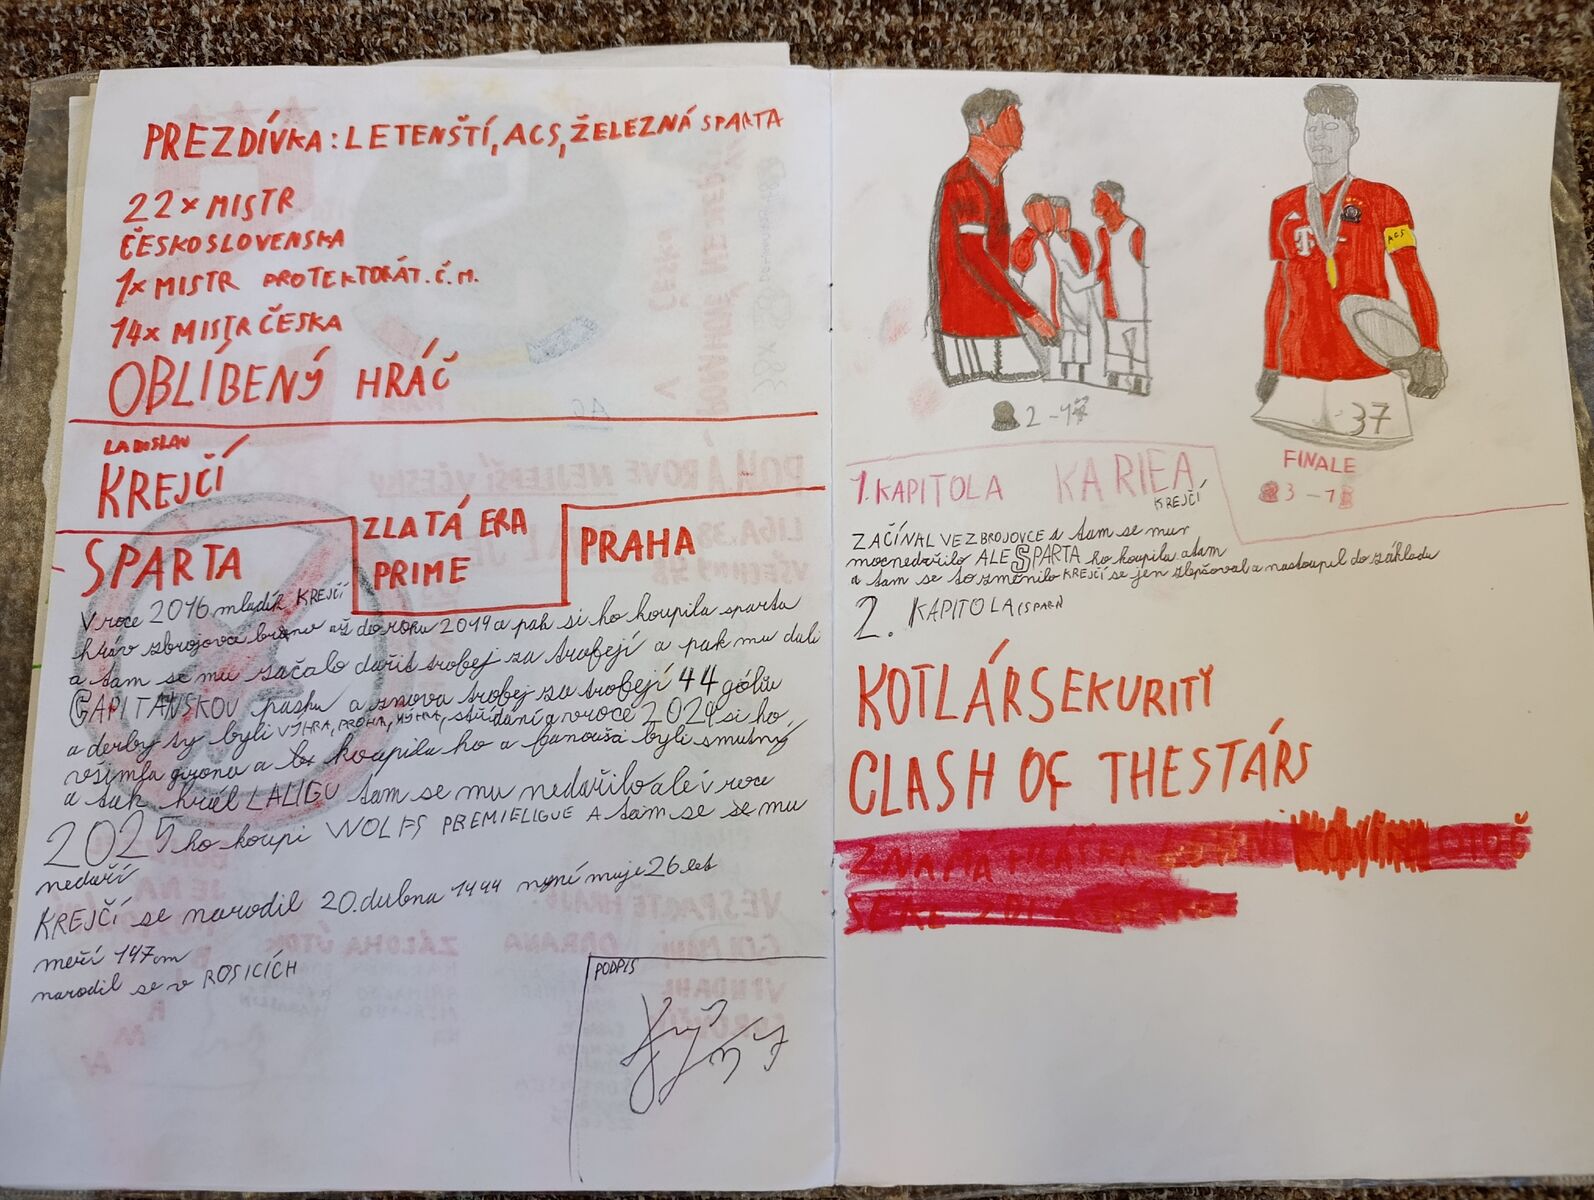 PREZDÍVKA: LETENŠTÍ, ACS, ŽELEZNÁ SPARTA
22x MISTR
ČESKOSLOVENSKA
1x MISTR PROTEKTORÁT.Č.M.
14x MISTR ČESKA
OBLÍBENÝ HRÁČ
LADISLAV
KREJČÍ
SPARTA
ZLATÁ ERA
PRIME
PRAHA
V roce 2016 mladík KREJČÍ
hráv zbrojova brano až do roku 2019 a pak si ho koupila sparta
a tam se mu začalo dařit trobej za trobejí a pak mu dali
CAPITÁNSKOU pásku a znova trobej za trobejí 44 gólů
a derby ty byli VÝHRA, PROHRA, VÝHRA, střídaní a v roce 2024 si ho
všimla girona a koupila ho a fanouší byli smutný
a tak hrál LALIGU tam se mu nedařilo ale v roce
2025 ho koupi WOLFS PREMIELIGUE A tam se se mu
nedaří
KREJČÍ se narodil 20.dubna 1999 nyní muje 26 let
měří 197cm
narodil se v ROSICÍCH
PODPIS
ACS
2-1
37
FINALE
3-1
1. KAPITOLA KARIEA
KREJČÍ
ZAČÍNAL VEZBROJOVCE a tam se mur
mocnedařilo ALE SPARTA ho koupila atam
a tam se to změnilo KREJČÍ se jen zlepšoval a nastoupil do základu
2. KAPITOLA
KOTLÁRSEKURITY
CLASH OF THESTÁRS